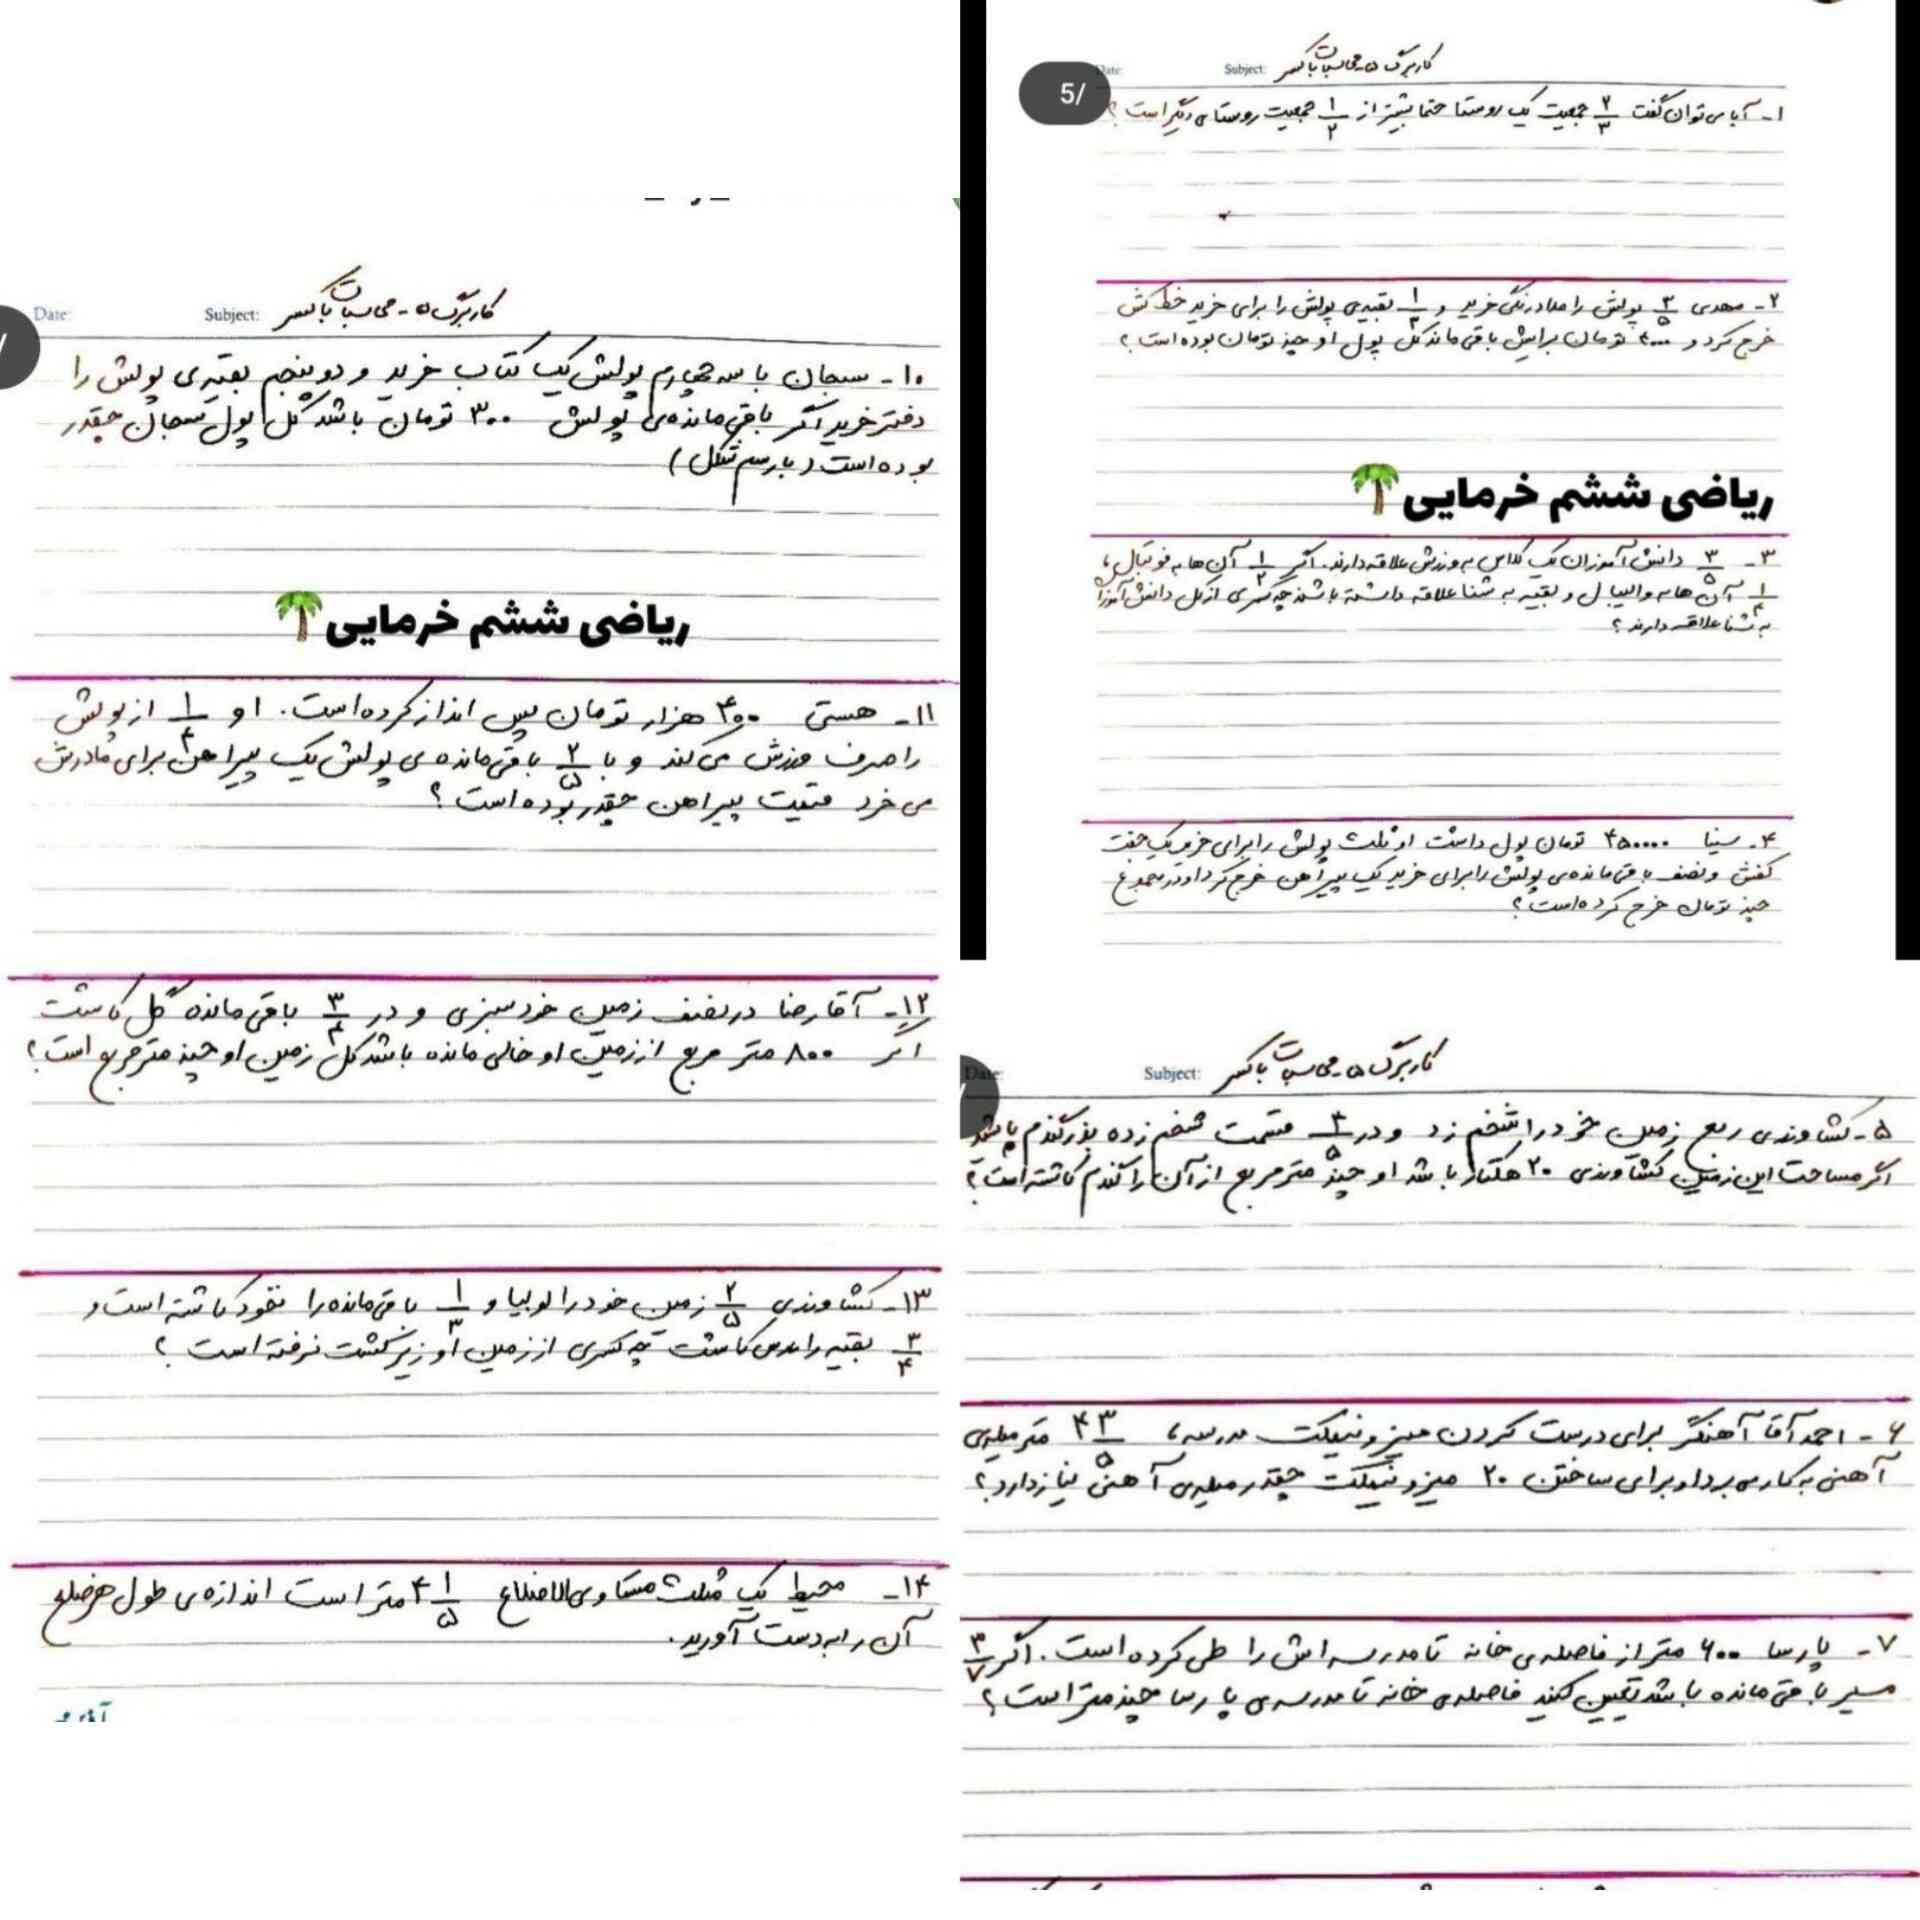 5/
Date:
Subject: کاربرگ ۵-محاسبات با کسر
۱- آیا می توان گفت ۲/۳ جمعیت یک روستا حتما بیشتر از ۱/۲ جمعیت روستای دیگر است؟
۲- مهدی ۳/۵ پولش را مداد رنگی خرید و ۱/۴ بقیه ی پولش را برای خرید خط کش
خرج کرد و تومان برایش باقی ماند کل پول او چند تومان بوده است؟
ریاضی ششم خرمایی
۳- ۳/۵ دانش آموزان یک کلاس به ورزش علاقه دارند. اگر ۱/۲ آن ها به فوتبال،
۱/۴ آن ها به والیبال و بقیه به شنا علاقه داشته باشند چه کسری از کل دانش آموزان
به شنا علاقه دارند؟
۴- سینا ۴۵۰۰۰۰ تومان پول داشت او ثلث پولش را برای خرید یک جفت
کفش و نصف باقی مانده ی پولش را برای خرید یک پیراهن خرج کرد او در مجموع
چند تومان خرج کرده است؟
Date:
Subject: کاربرگ ۵-محاسبات با کسر
۵- کشاورزی ربع زمین خود را شخم زد و در ۳/۵ قسمت شخم زده بذر گندم پاشید
اگر مساحت این زمین کشاورزی ۲۰ هکتار باشد او چند متر مربع از آن را گندم کاشته است؟
۶- احمد آقا آهنگر برای درست کردن میز و نیمکت مدرسه، ۴ ۳/۵ متر میله ی
آهنی به کار می برد او برای ساختن ۲۰ میز و نیمکت چقدر میله ی آهنی نیاز دارد؟
۷- پارسا ۶۰۰ متر از فاصله ی خانه تا مدرسه اش را طی کرده است. اگر ۳/۷
مسیر باقی مانده باشد تعیین کنید فاصله ی خانه تا مدرسه ی پارسا چند متر است؟
Date:
Subject: کاربرگ ۵-محاسبات با کسر
۱۰- سبحان با سه چهارم پولش یک کتاب خرید و دو پنجم بقیه ی پولش را
دفتر خرید اگر باقی مانده ی پولش ۳۰۰ تومان باشد کل پول سبحان چقدر
بوده است (با رسم شکل)
ریاضی ششم خرمایی
۱۱- هستی ۴۰۰ هزار تومان پس انداز کرده است. او ۱/۴ از پولش
را صرف ورزش می کند و با ۲/۵ باقی مانده ی پولش یک پیراهن برای مادرش
می خرد قیمت پیراهن چقدر بوده است؟
۱۲- آقا رضا در نصف زمین خود سبزی و در ۳/۴ باقی مانده گل کاشت
اگر ۸۰۰ متر مربع از زمین او خالی مانده باشد کل زمین او چند متر مربع است؟
۱۳- کشاورزی ۲/۵ زمین خود را لوبیا و ۱/۳ باقی مانده را نخود کاشته است و
۳/۴ بقیه را عدس کاشت چه کسری از زمین او زیر کشت نرفته است؟
۱۴- محیط یک مثلث متساوی الاضلاع ۴ ۱/۵ متر است اندازه ی طول هر ضلع
آن را به دست آورید.